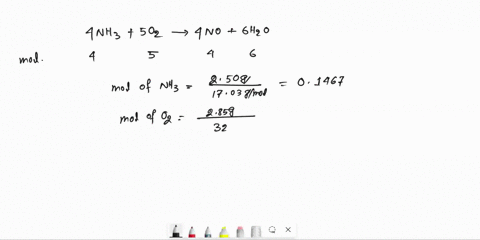 4NH3 + 5O2 → 4NO + 6H2O
mol. 4 5 4 6
mol of NH3 = 2.50g / 17.03g/mol = 0.1467
mol of O2 = 2.85g / 32